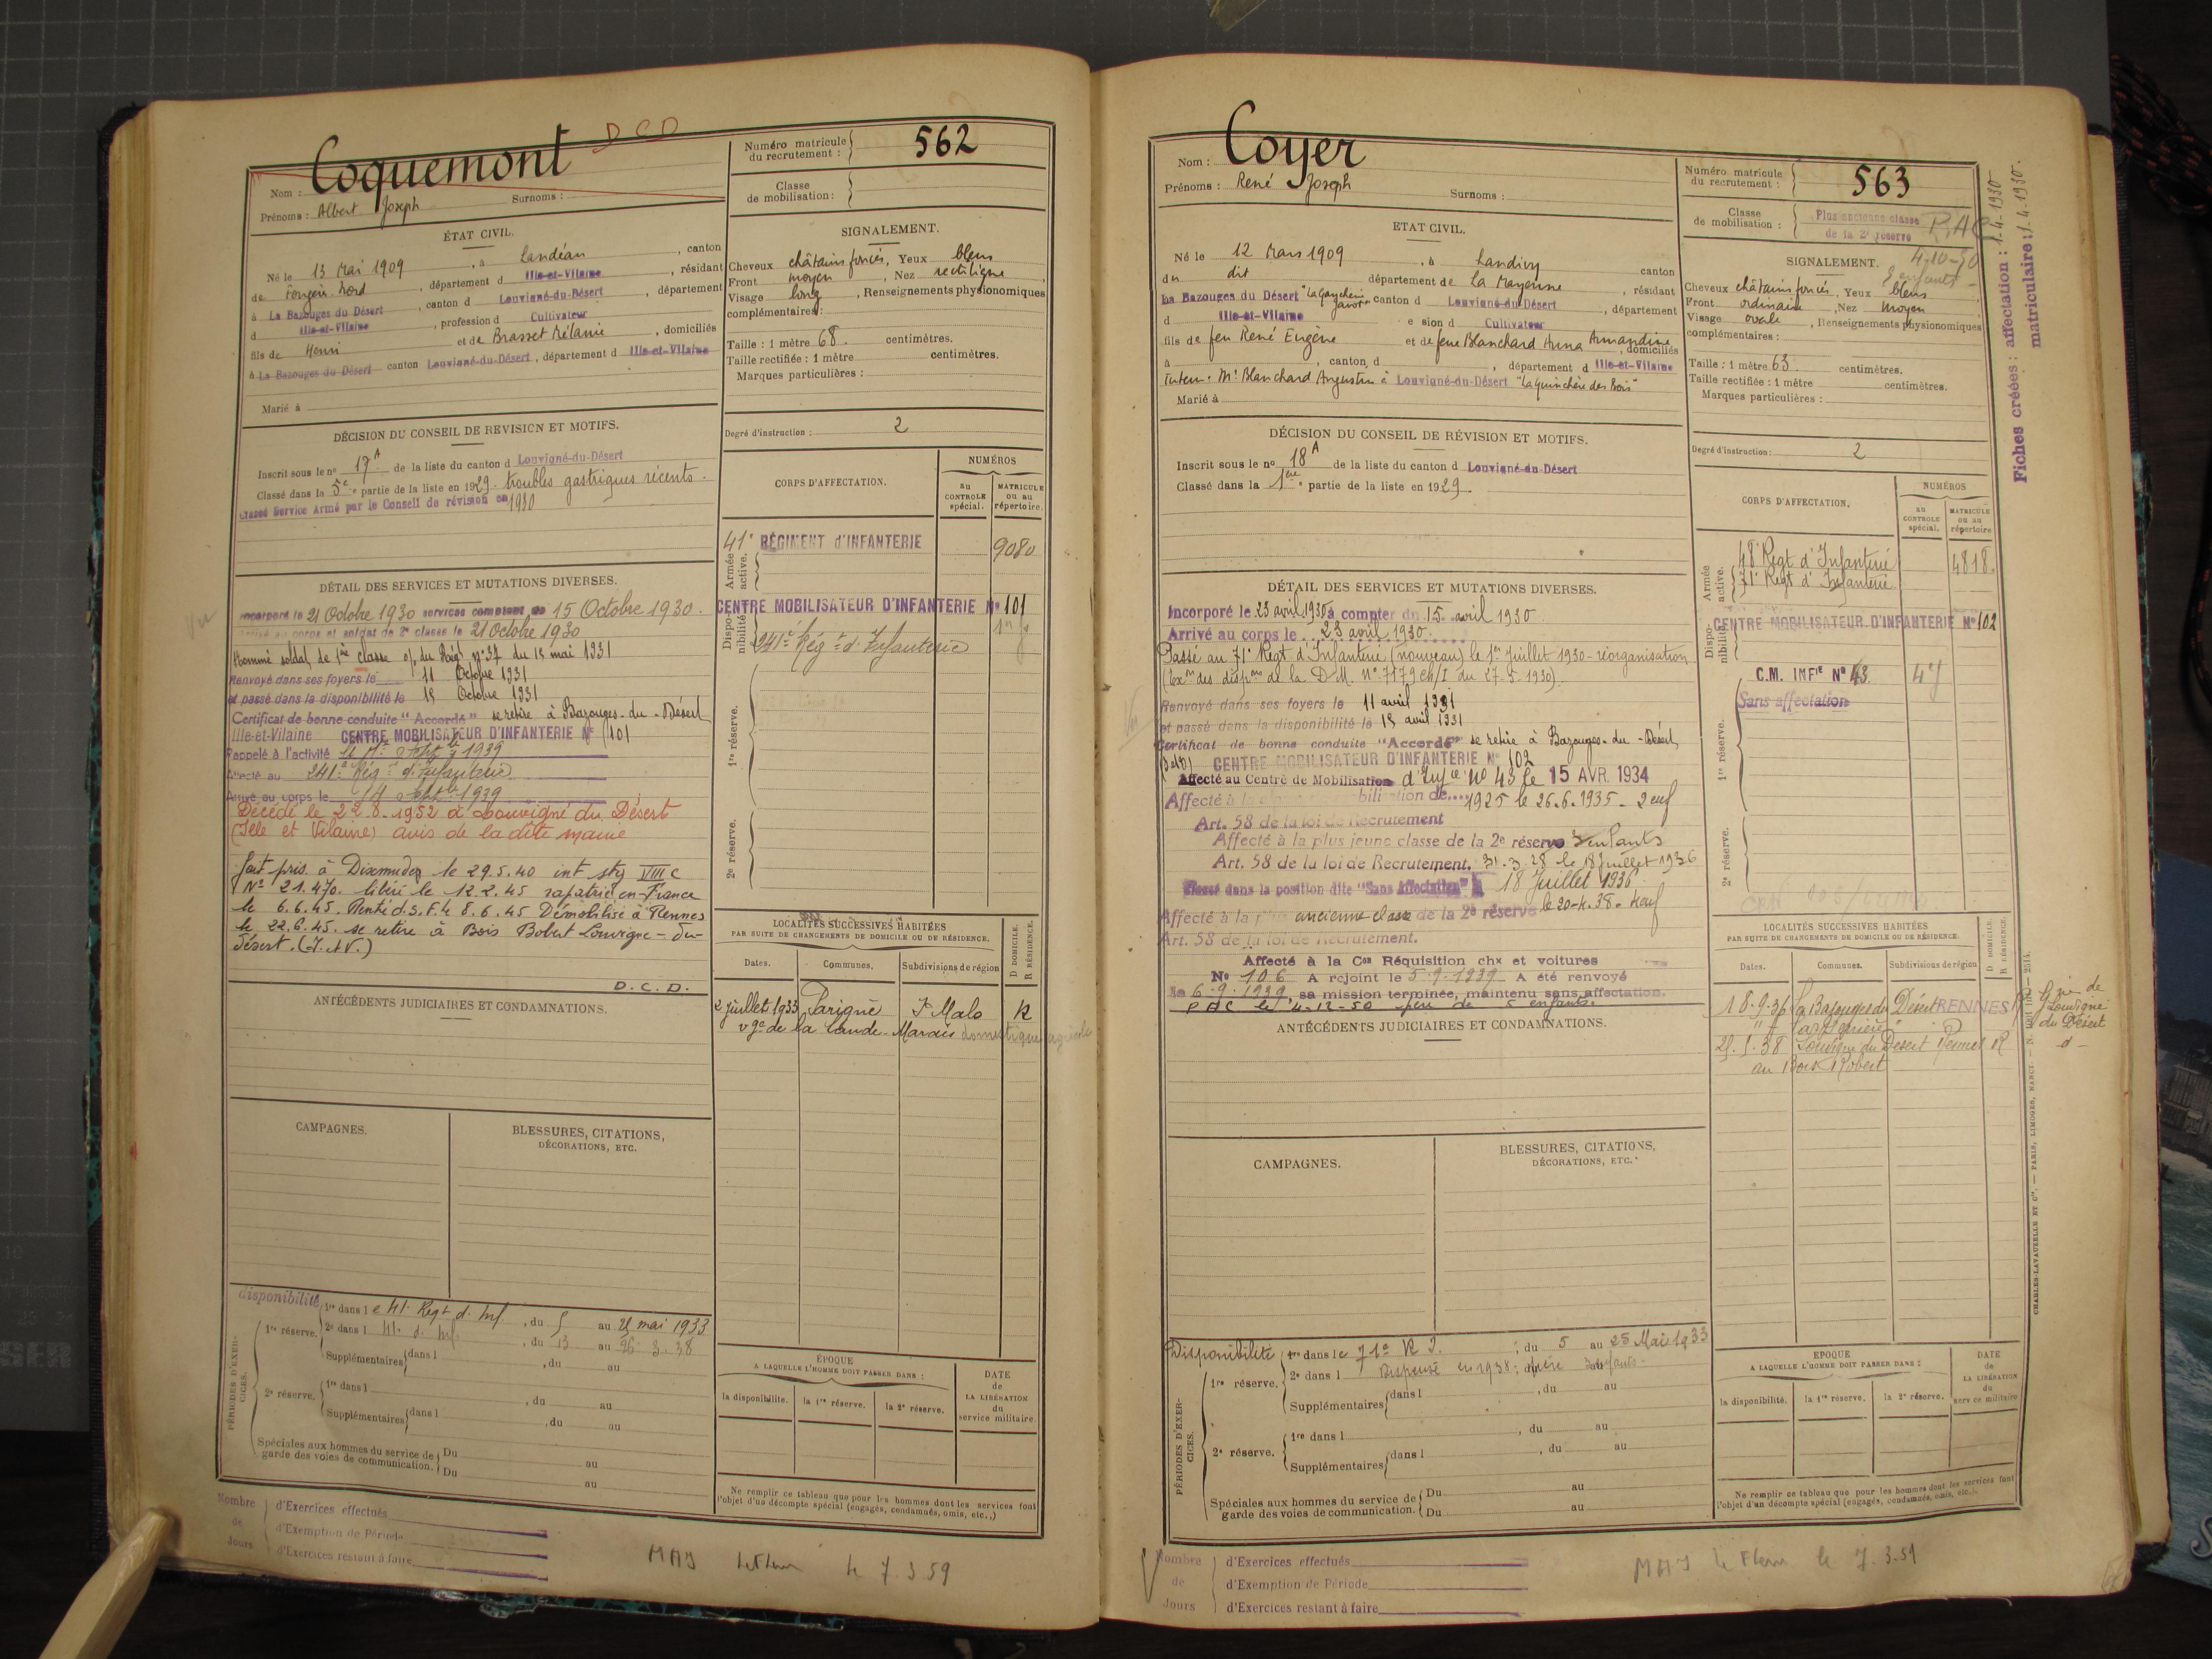 D C D
Nom : Coquemont
Prénoms : Albert Joseph Surnoms :
Numéro matricule du recrutement : 562
Classe de mobilisation :
ÉTAT CIVIL.
Né le 13 Mai 1909, à Landéan, canton
de Fougères Nord, département d Ille-et-Vilaine, résidant
à La Bazouges du Désert, canton d Louvigné-du-Désert, département
d Ille-et-Vilaine, profession d Cultivateur
fils de Henri et de Brasset Mélanie, domiciliés
à La Bazouges du Désert canton Louvigné-du-Désert, département d Ille-et-Vilaine
Marié à
SIGNALEMENT.
Cheveux châtains foncés, Yeux bleus
Front moyen, Nez rectiligne
Visage long, Renseignements physionomiques
complémentaires :
Taille : 1 mètre 68. centimètres.
Taille rectifiée : 1 mètre centimètres.
Marques particulières :
Degré d'instruction : 2
DÉCISION DU CONSEIL DE REVISION ET MOTIFS.
Inscrit sous le no 17 A de la liste du canton d Louvigné-du-Désert
Classé dans la 5e partie de la liste en 1929. troubles gastriques récents.
Classé Service Armé par le Conseil de révision en 1930
CORPS D'AFFECTATION.
NUMÉROS
au CONTROLE spécial.
MATRICULE ou au répertoire.
Armée active.
41e RÉGIMENT d'INFANTERIE 9080
Disponibilité.
CENTRE MOBILISATEUR D'INFANTERIE No 101
241e Régt d'Infanterie
1re réserve.
2e réserve.
DÉTAIL DES SERVICES ET MUTATIONS DIVERSES.
Incorporé le 21 Octobre 1930 services comptent du 15 Octobre 1930.
Arrivé au corps et soldat de 2e classe le 21 Octobre 1930
Nommé soldat de 1re classe o/ du Régt no 37 du 15 mai 1931
Renvoyé dans ses foyers le 11 Octobre 1931
et passé dans la disponibilité le 15 Octobre 1931
Certificat de bonne conduite "Accordé" se retire à Bazouges-du-Désert
Ille-et-Vilaine CENTRE MOBILISATEUR D'INFANTERIE No 101
Rappelé à l'activité le
Affecté au 241e Régt d'Infanterie
Arrivé au corps le 14 Septbre 1939
Décédé le 22.8.1952 à Louvigné du Désert
(Ille et Vilaine) avis de la dite mairie
fait pris. à Dixmudes le 29.5.40 int stg VIII C
No 21.470. libéré le 12.2.45 rapatrié en France
le 6.6.45. Rentré d.s.F. le 8.6.45 Démobilisé à Rennes
le 22.6.45. se retire à Bois Bobert Louvigné-du-
Désert. (I. et V.)
D. C. D.
ANTÉCÉDENTS JUDICIAIRES ET CONDAMNATIONS.
LOCALITÉS SUCCESSIVES HABITÉES
PAR SUITE DE CHANGEMENTS DE DOMICILE OU DE RÉSIDENCE.
D DOMICILE. R RÉSIDENCE.
Dates. Communes. Subdivisions de région
2 juillet 1933 Parigné St Malo R
vge de la Lande-Marais domestique agricole
CAMPAGNES.
BLESSURES, CITATIONS,
DÉCORATIONS, ETC.
PÉRIODES D'EXERCICES.
disponibilité
1re dans le 41e Regt d. Inf., du 5 au 25 mai 1933
1re réserve.
2e dans l 41e d. Inf., du 13 au 26.3.38
Supplémentaires dans l , du au
2e réserve.
1re dans l , du au
Supplémentaires dans l , du au
Spéciales aux hommes du service de garde des voies de communication.
Du au
Du au
ÉPOQUE
A LAQUELLE L'HOMME DOIT PASSER DANS :
la disponibilité. la 1re réserve. la 2e réserve.
DATE de LA LIBÉRATION du service militaire.
Ne remplir ce tableau que pour les hommes dont les services font
l'objet d'un décompte spécial (engagés, condamnés, omis, etc.,)
Nombre de Jours
d'Exercices effectués
d'Exemption de Période
d'Exercices restant à faire
MAJ le 7.3.59
Nom : Coyer
Prénoms : René Joseph Surnoms :
Numéro matricule du recrutement : 563
Classe de mobilisation : Plus ancienne classe de la 2e réserve
4-10-50
Fiches créées : affectation : 1.4.1930
matriculaire : 1.4.1930.
ETAT CIVIL.
Né le 12 Mars 1909, à Landivy canton
du dit département de La Mayenne, résidant
La Bazouges du Désert canton d Louvigné-du-Désert, département
d Ille-et-Vilaine e sion d Cultivateur
fils de feu René Eugène et de feue Blanchard Anna Amandine, domiciliés
à , canton d , département d Ille-et-Vilaine
tuteur: Mr Blanchard Augustin à Louvigné-du-Désert "La Quinchère des Bois"
Marié à
SIGNALEMENT.
Cheveux châtains foncés, Yeux bleus
Front ordinaire, Nez moyen
Visage ovale, Renseignements physionomiques
complémentaires :
Taille : 1 mètre 63. centimètres.
Taille rectifiée : 1 mètre centimètres.
Marques particulières :
Degré d'instruction : 2
DÉCISION DU CONSEIL DE RÉVISION ET MOTIFS.
Inscrit sous le no 18 A de la liste du canton d Louvigné-du-Désert
Classé dans la 1ere partie de la liste en 1929.
CORPS D'AFFECTATION.
NUMÉROS
au CONTROLE spécial.
MATRICULE ou au répertoire
Armée active.
48e Regt d'Infanterie 4818.
71e Regt d'Infanterie
Disponibilité.
CENTRE MOBILISATEUR D'INFANTERIE No 102
C.M. INFie No 43
Sans affectation
1re réserve.
2e réserve.
DÉTAIL DES SERVICES ET MUTATIONS DIVERSES.
Incorporé le 23 avril 1930 à compter du 15 avril 1930.
Arrivé au corps le 23 avril 1930.
Passé au 71e Regt d'Infanterie (nouveau) le 1er Juillet 1930 - réorganisation
(Exon des dispons de la D.M. no 7179 eh/I du 27-5-1930).
Renvoyé dans ses foyers le 11 avril 1931
et passé dans la disponibilité le 15 avril 1931
Certificat de bonne conduite "Accordé" se retire à Bazouges-du-Désert
CENTRE MOBILISATEUR D'INFANTERIE No 102
Affecté au Centre de Mobilisation d'Infie no 43 le 15 AVR. 1934
Affecté à la classe de mobilisation de 1925 le 26.6.1935 - 2 enf
Art. 58 de la loi de Recrutement
Affecté à la plus jeune classe de la 2e réserve 3 enfants
Art. 58 de la loi de Recrutement. le 18 Juillet 1936
Classé dans la position dite "Sans Affectation" 18 Juillet 1936
Affecté à la plus ancienne classe de la 2e réserve le 20-4.38.
Art. 58 de la loi de Recrutement.
Affecté à la Con Réquisition chx et voitures
No 106 A rejoint le 5.9.1939 A été renvoyé
le 6-9-1939, sa mission terminée, maintenu sans affectation.
PAC le 4-12-50 père de 5 enfants.
ANTÉCÉDENTS JUDICIAIRES ET CONDAMNATIONS.
LOCALITÉS SUCCESSIVES HABITÉES
PAR SUITE DE CHANGEMENTS DE DOMICILE OU DE RÉSIDENCE.
D DOMICILE. R RÉSIDENCE.
Dates. Communes. Subdivisions de région
18.9.36 La Bazouges du Désert RENNES
Louvigné du Désert Rennes R
au Bois Robert
Gne de
Louvigné
du Désert
CAMPAGNES.
BLESSURES, CITATIONS,
DÉCORATIONS, ETC.
PÉRIODES D'EXERCICES.
Disponibilité
1re dans le 71e R.I. ; du 5 au 25 Mai 1933
1re réserve.
2e dans l Dispensé en 1938; père
Supplémentaires dans l , du au
2e réserve.
1re dans l , du au
Supplémentaires dans l , du au
Spéciales aux hommes du service de garde des voies de communication.
Du au
Du au
EPOQUE
A LAQUELLE L'HOMME DOIT PASSER DANS :
la disponibilité. la 1re réserve. la 2e réserve.
DATE de LA LIBÉRATION du service militaire
Ne remplir ce tableau que pour les hommes dont les services font
l'objet d'un décompte spécial (engagés, condamnés, omis, etc.,).
CHARLES-LAVAUZELLE ET Cie. — PARIS, LIMOGES, NANCY
Nombre de Jours
d'Exercices effectués
d'Exemption de Période
d'Exercices restant à faire
MAJ le 7.3.59